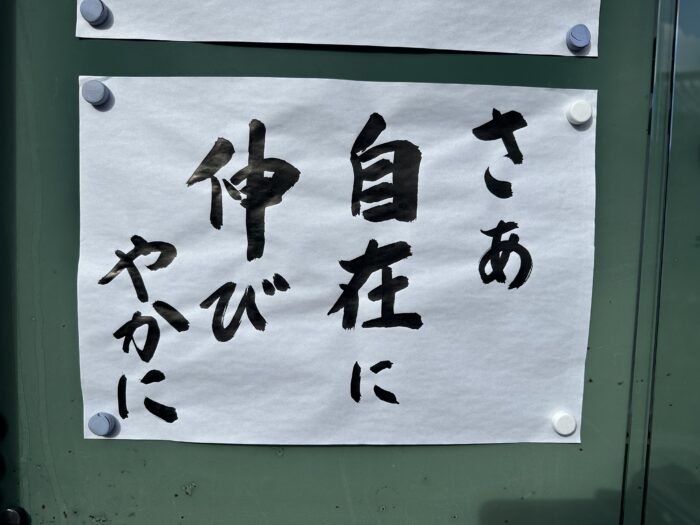 さあ
自在に
伸び
やかに